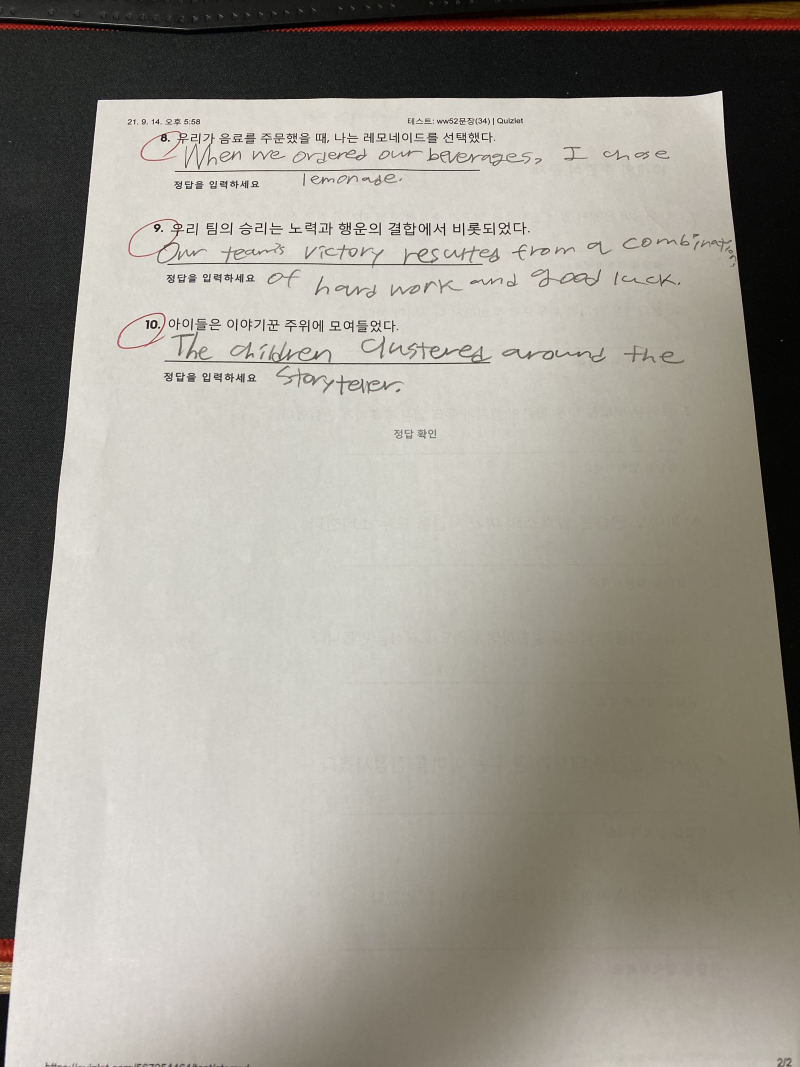 21. 9. 14. 오후 5:58 테스트: ww52문장(34) | Quizlet
8. 우리가 음료를 주문했을 때, 나는 레모네이드를 선택했다.
When we ordered our beverages, I chose
정답을 입력하세요 lemonade.
9. 우리 팀의 승리는 노력과 행운의 결합에서 비롯되었다.
Our team's victory resulted from a combination
정답을 입력하세요 of hard work and good luck.
10. 아이들은 이야기꾼 주위에 모여들었다.
The children clustered around the
정답을 입력하세요 storyteller.
정답 확인
2/2